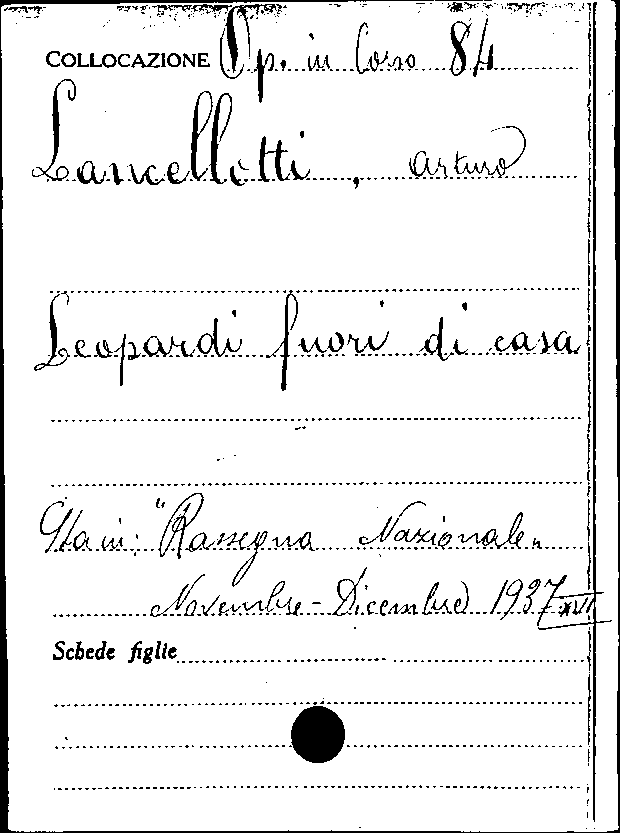 COLLOCAZIONE Op. in Corso 84
Lancellotti, Arturo
Leopardi fuori di casa
Sta in: "Rassegna Nazionale„
Novembre - Dicembre 1937 XVI
Schede figlie